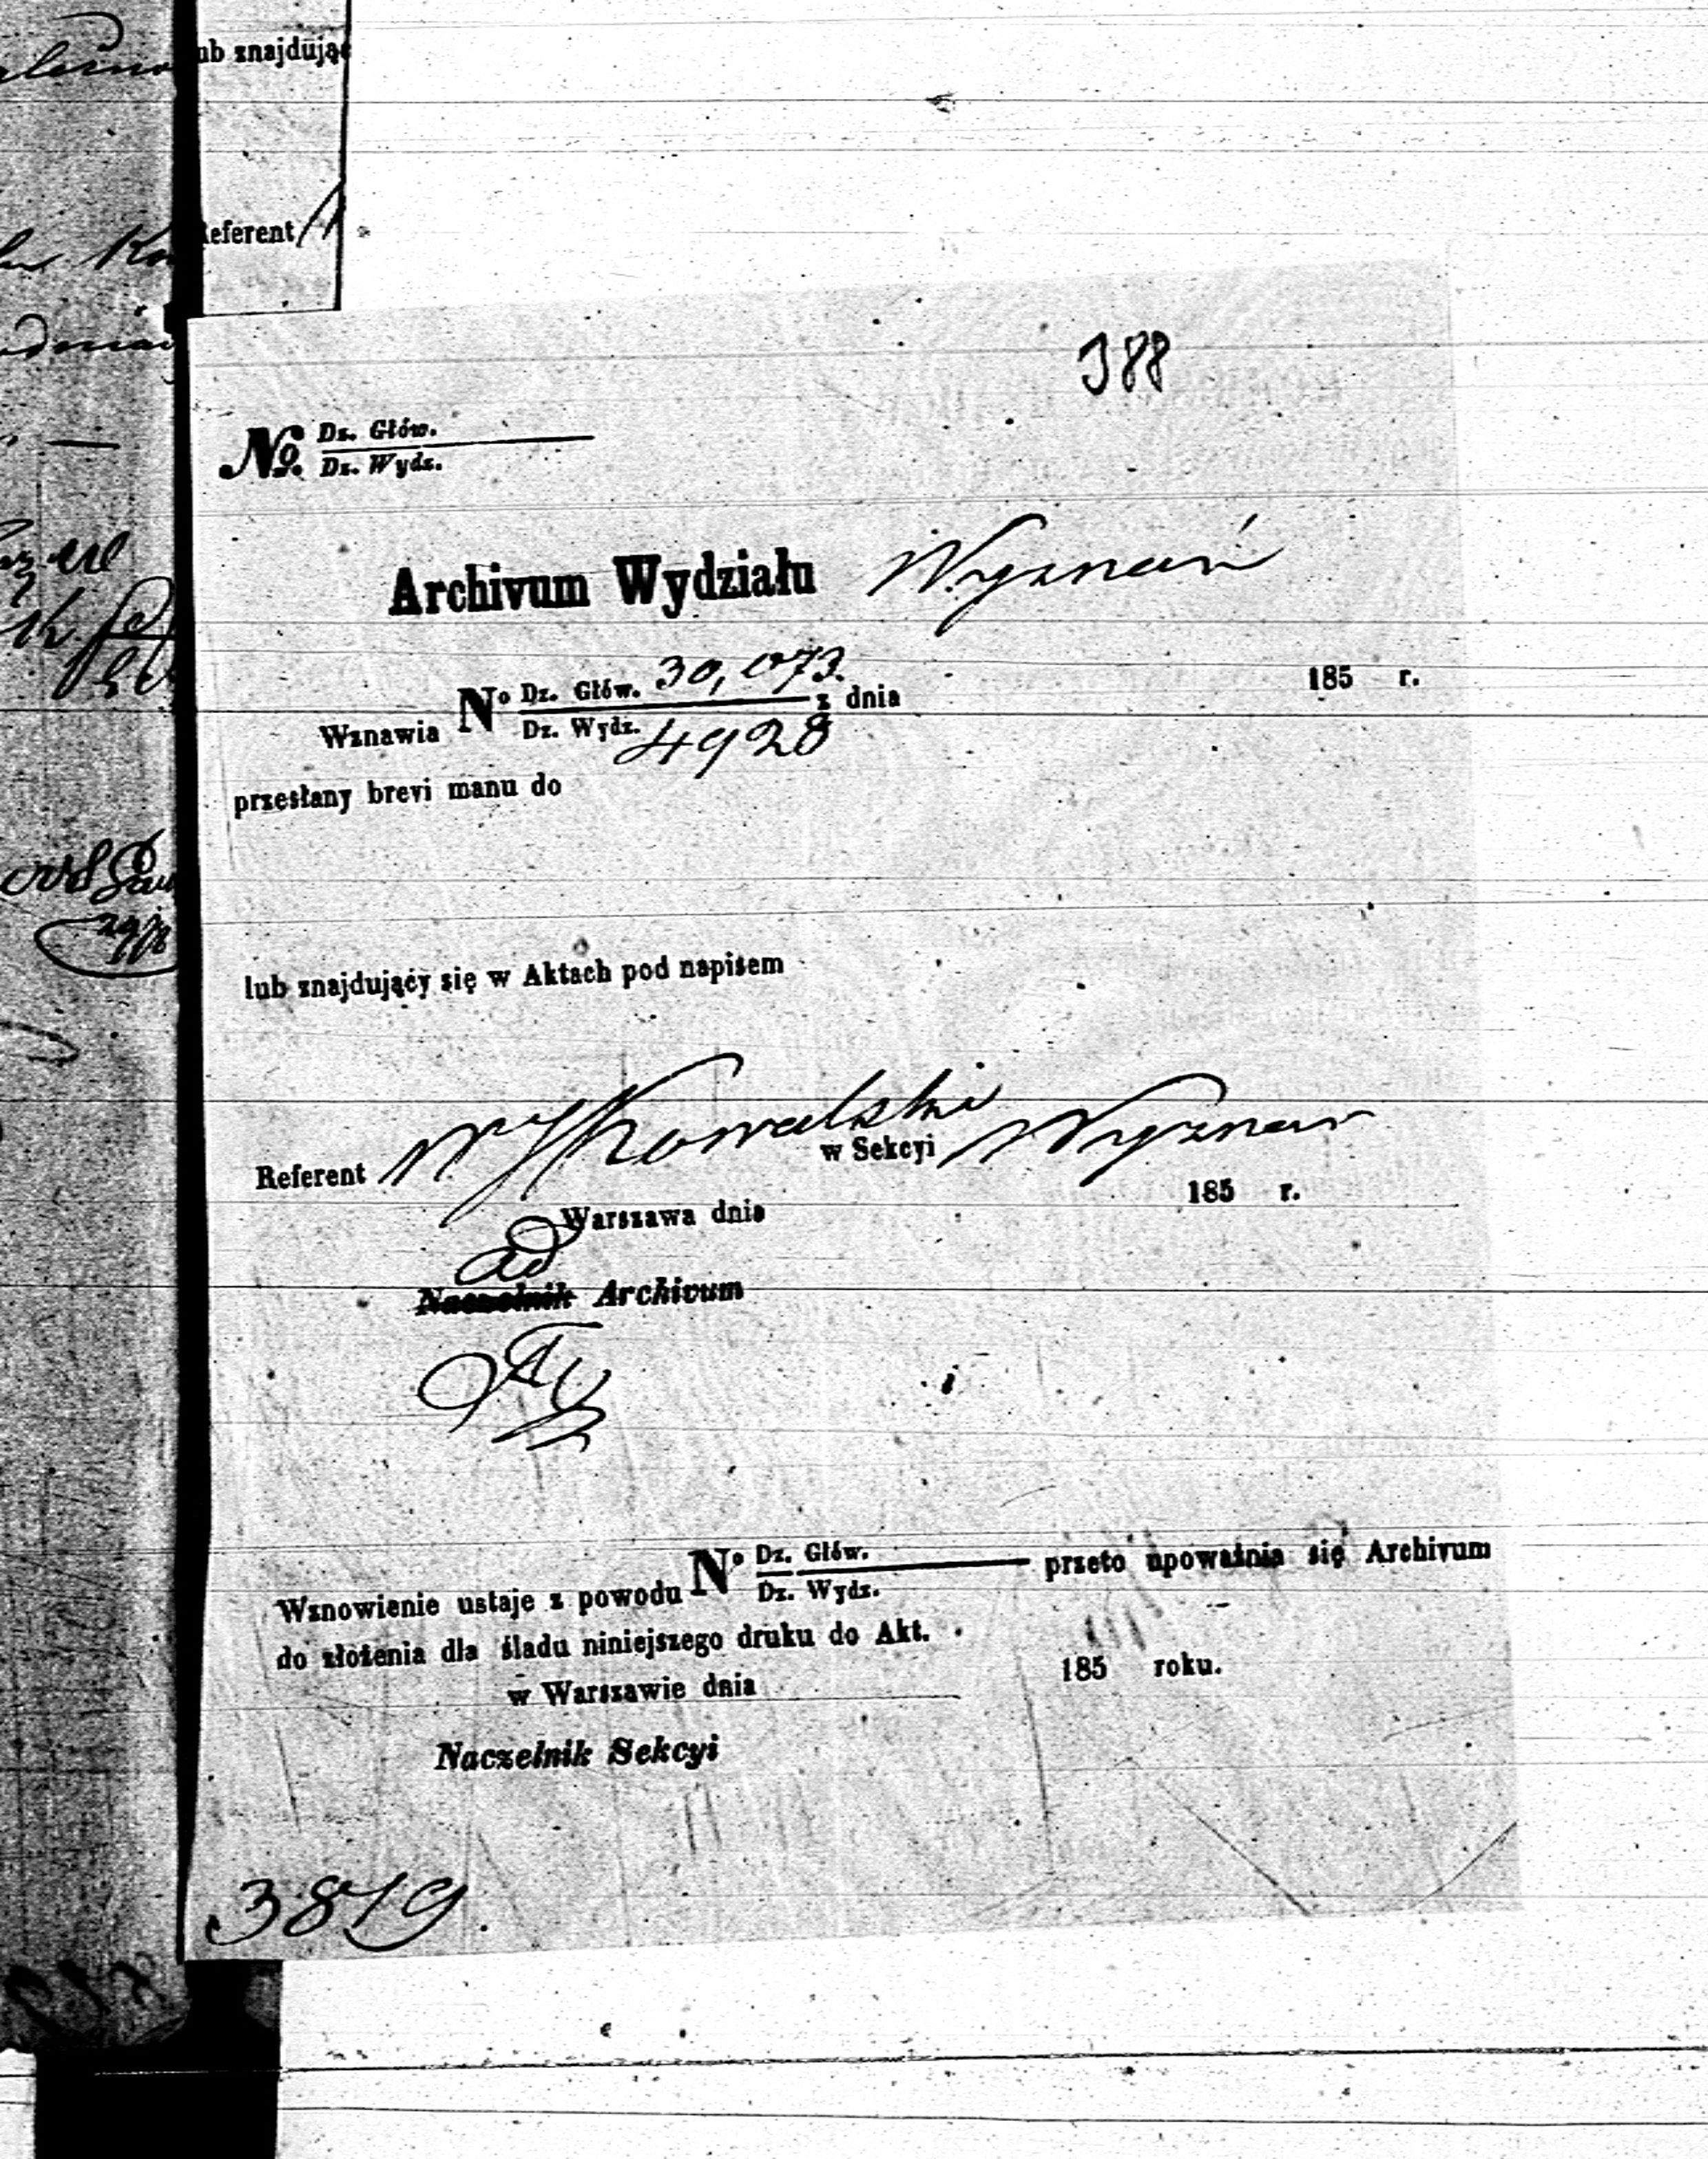 ub znajdując
eferent
388
No. Dz. Głów.
Dz. Wydz.
Archivum Wydziału Wyznań
Wznawia No Dz. Głów. 30,073. z dnia 185 r.
Dz. Wydz. 4928
przesłany brevi manu do
lub znajdujący się w Aktach pod napisem
Referent W Kowalski w Sekcyi Wyznań
Warszawa dnia 185 r.
ad
Naczelnik Archivum
Wznowienie ustaje z powodu No Dz. Głów. przeto upoważnia się Archivum
Dz. Wydz.
do złożenia dla śladu niniejszego druku do Akt.
w Warszawie dnia 185 roku.
Naczelnik Sekcyi
3819.